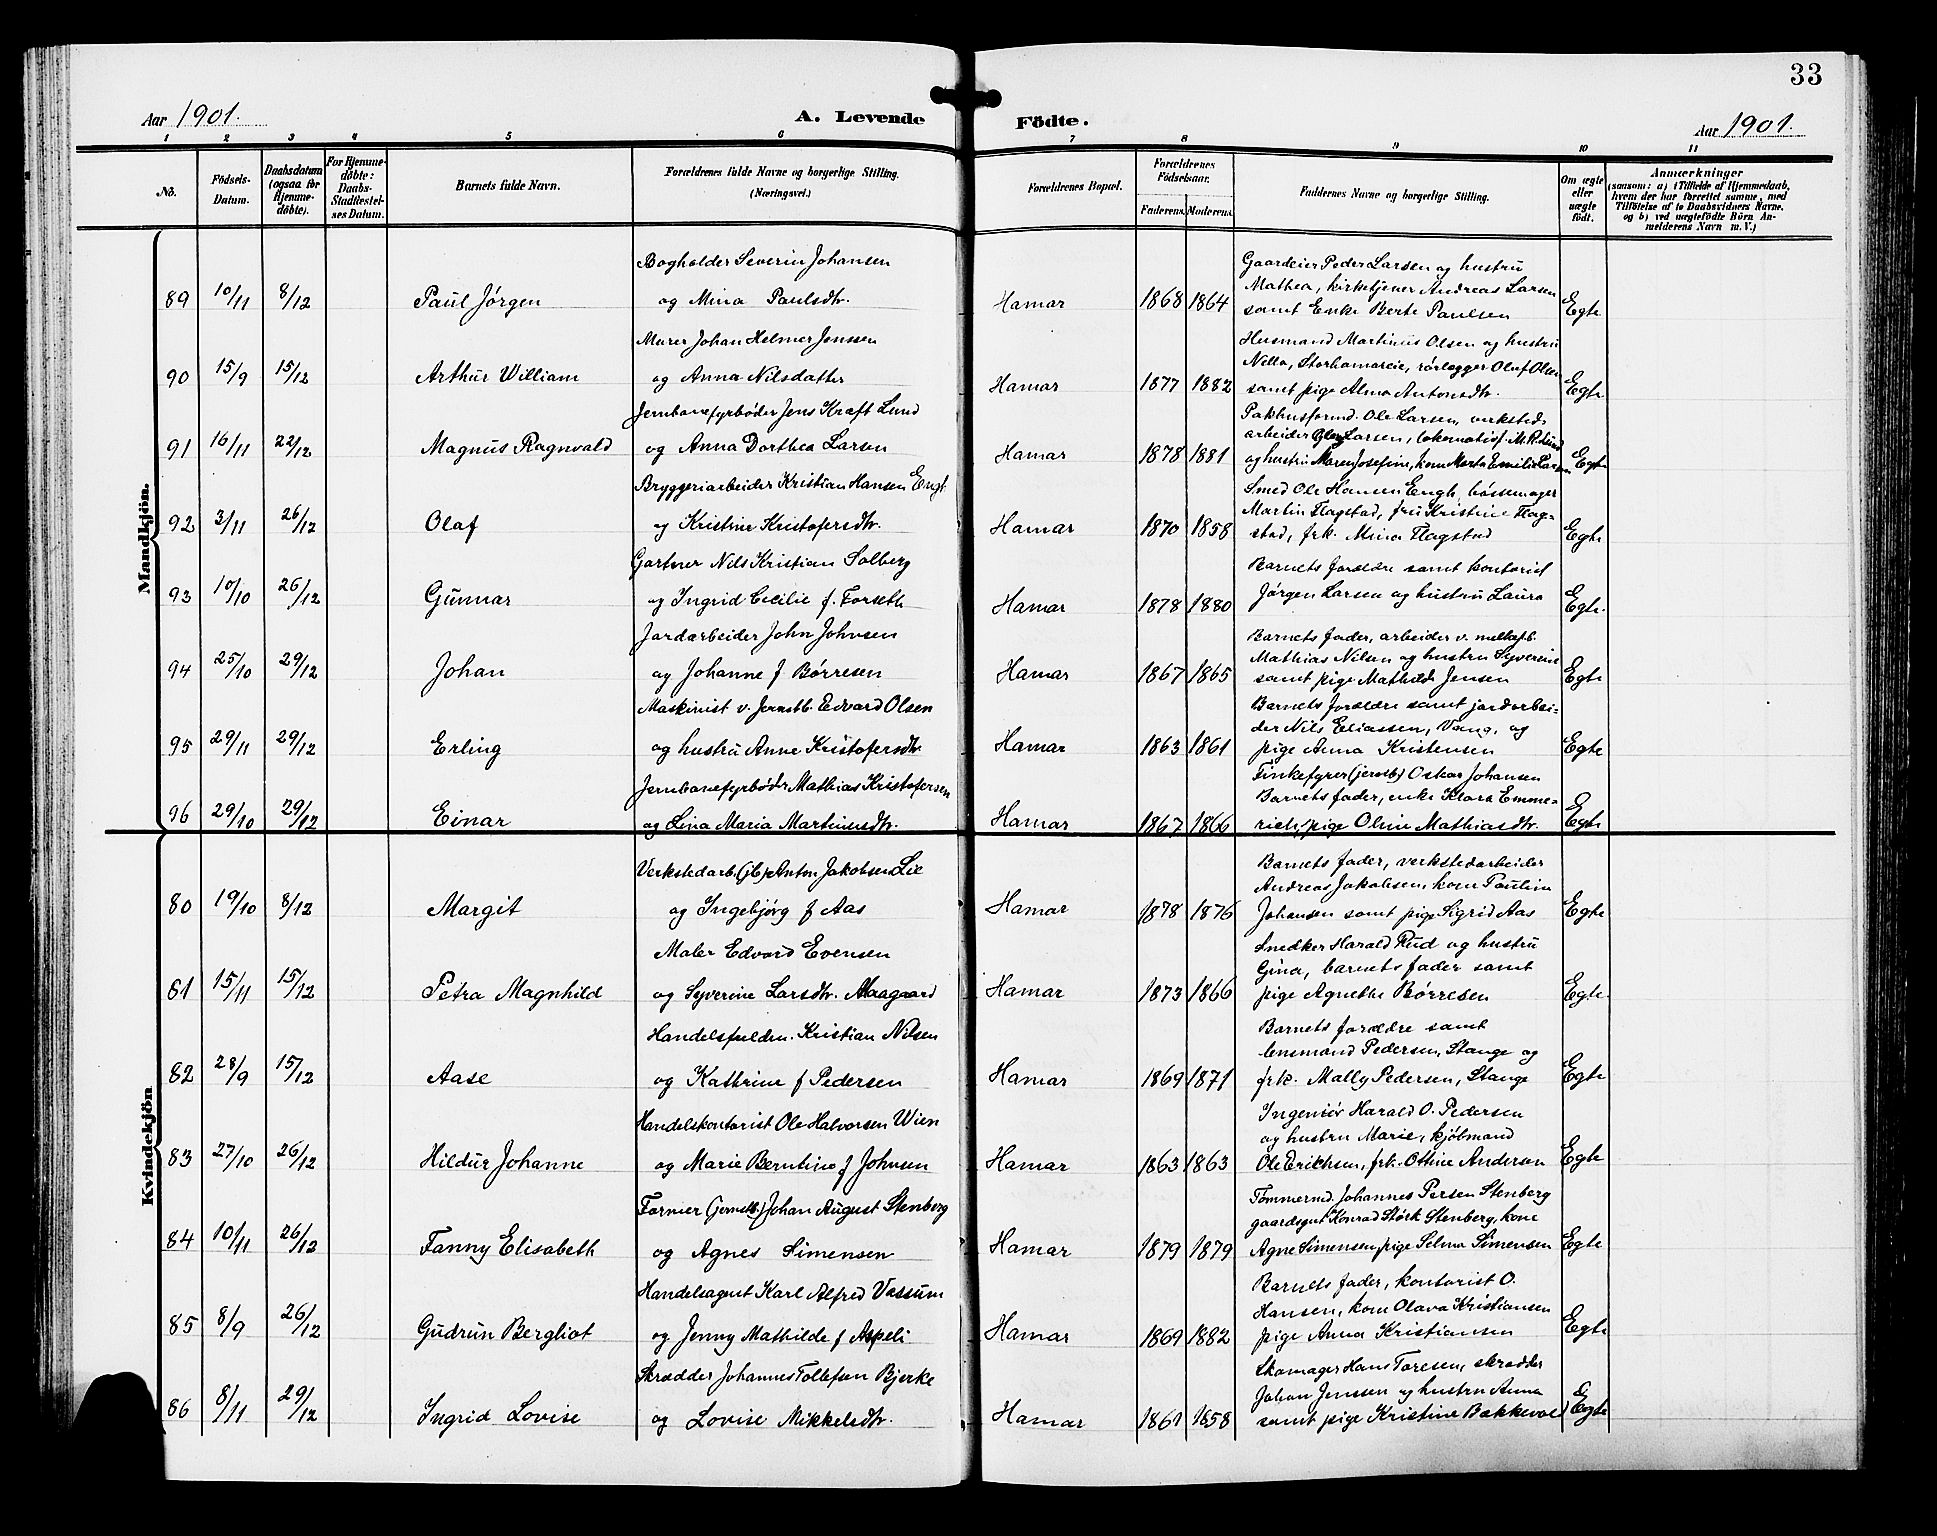 33
Aar 1901.
A. Levende Födte.
Aar 1901.
1 2 3 4 5 6 7 8 9 10 11
No.
Födsels-Datum.
Daabsdatum (ogsaa for Hjemmedöbte).
For Hjemmedöbte: Daabs-Stadfestelses Datum.
Barnets fulde Navn.
Forældrenes fulde Navne og borgerlige Stilling.
(Næringsvei.)
Forældrenes Bopæl.
Forældrenes Födselsaar.
Faderens. Moderens.
Faddernes Navne og borgerlige Stilling.
Om ægte eller uægte födt.
Anmerkninger
(saasom: a) i Tilfælde af Hjemmedaab, hvem der har forrettet samme, med Tilföielse af to Daabsvidners Navne, og b) ved uægtefödte Börn Anmelderens Navn m. V.)
Mandkjön.
Bogholder Severin Johansen
89 10/11 8/12 Paul Jørgen og Mina Paulsdtr. Hamar 1868 1864 Egte
Gaardeier Peder Larsen og hustru
Mathea, kirketjener Andreas Larsen
samt Enke Berte Paulsen
Murer Johan Helmer Jenssen
90 15/9 15/12 Arthur William og Anna Nilsdatter Hamar 1877 1882 Egte
Husmand Martinus Olsen og hustru
Nella, Storhamareie, rørlegger Olaf Olsen
samt pige Alma Antonsdtr.
Jernbanefyrbøder Jens Kraft Lund
91 16/11 22/12 Magnus Ragnvald og Anna Dorthea Larsen Hamar 1878 1881 Egte
Pakhusformd. Ole Larsen, verksteds
arbeider Larsen, lokomotivf. M. R. Lund
og hustru Maren Josefine, kone Marta Emilie Larsen
Bryggeriarbeider Kristian Hansen Engh
92 3/11 26/12 Olaf og Kristine Kristofersdtr. Hamar 1870 1858 Egte
Smed Ole Hansen Engh, bøssemager
Martin Flagstad, fru Kristine Flag-
stad, frk. Mina Flagstad
Gartner Nils Kristian Solberg
93 10/10 26/12 Gunnar og Ingrid Cecilie f. Forseth Hamar 1878 1880 Egte.
Barnets forældre samt kontorist
Jørgen Larsen og hustru Laura
Jordarbeider John Johnsen
94 25/10 29/12 Johan og Johanne f Børresen Hamar 1867 1865 Egte
Barnets fader, arbeider v. melkefb.
Mathias Nilsen og hustru Syverine
samt pige Mathilde Jensen
Maskinist v. Jernstb. Edvard Olsen
95 29/11 29/12 Erling og hustru Anne Kristofersdtr. Hamar 1863 1861 Egte
Barnets forældre samt jordarbei-
der Nils Eliassen, Vang, og
pige Anna Kristensen
Jernbanefyrbødr Mathias Kristofersen
96 29/10 29/12 Einar og Lina Maria Martinusdtr. Hamar 1867 1866 Egte
Finkefyrer (jernb) Oskar Johansen
Barnets fader, enke Klara Emme-
rich, pige Oline Mathiasdtr.
Kvindekjön
Verkstedarb. (jb) Anton Jakobsen Lie
80 19/10 8/12 Margit og Ingebjørg f Aas Hamar 1878 1876 Egte
Barnets fader, verkstedarbeider
Andreas Jakobsen, kone Pauline
Johansen samt pige Sigrid Aas
Maler Edvard Evensen
81 15/11 15/12 Petra Magnhild og Syverine Larsdtr. Maagaard Hamar 1873 1866 Egte.
Snedker Harald Rud og hustru
Gina, barnets fader samt
pige Agnethe Børresen
Handelsfuldm. Kristian Nilsen
82 28/9 15/12 Aase og Kathrine f Pedersen Hamar 1869 1871 Egte
Barnets forældre samt
lensmand Pedersen, Stange og
frk. Mally Pedersen, Stange
Handelskontorist Ole Halvorsen Wien
83 27/10 26/12 Hildur Johanne og Marie Berntine f Johnsen Hamar 1863 1863 Egte
Ingeniør Harald O. Pedersen
og hustru Marie, kjøbmand
Ole Erichsen, frk. Othine Andersen
Formier (jernstb.) Johan August Stenberg
84 10/11 26/12 Fanny Elisabeth og Agnes Simensen Hamar 1879 1879 Egte
Tømmermd. Johannes Persen Stenberg
gaardsgut Konrad Størk Stenberg, kone
Agne Simensen, pige Selma Simensen
Handelsagent Karl Alfred Vassum
85 8/9 26/12 Gudrun Bergliot og Jenny Mathilde f Aspeli Hamar 1869 1882 Egte
Barnets fader, kontorist O.
Hansen, kone Olava Kristiansen
pige Anna Kristiansen
Skrædder Johannes Tollefsen Bjerke
86 8/11 29/12 Ingrid Lovise og Lovise Mikkelsdtr. Hamar 1861 1858 Egte
Skomager Hans Toresen, skrædder
Johan Jenssen og hustru Anna
samt pige Kristine Bakkevold